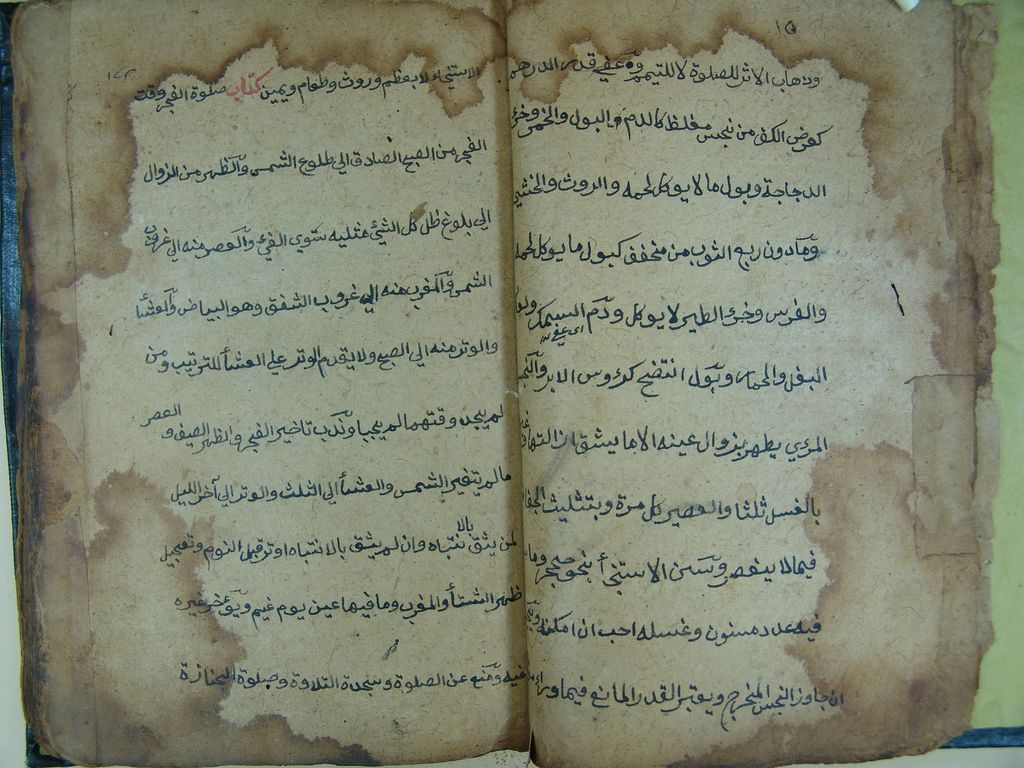 ١٥
وذهاب الاثر للصلوة لا للتيمم وعفي قدر الدرهم
كعرض الكف من نجس مغلظ كالدم والبول والخمر وخرء
الدجاجة وبول ما لا يوكل لحمه والروث والخثي
وما دون ربع الثوب من مخفف كبول ما يوكل لحمه
والفرس وخرء الطير لا يوكل ودم السمك ولعاب
اي عفي
البغل والحمار وبول انتضح كرءوس الابر والنجس
المرءي يطهر بزوال عينه الا ما يشق ازالتها
بالغسل ثلثا والعصر كل مرة وبتثليث الجفاف
فيما لا ينعصر وسن الاستنجأ بنحو حجر وما
فيه عدد مسنون وغسله احب ان امكنه
ان جاوز النجس المخرج ويعتبر القدر المانع فيما وراء
الاستنجاء لا بعظم وروث وطعام ويمين كتاب صلوة الفجر وقت
الفجر من الصبح الصادق الي طلوع الشمس والظهر من الزوال
الي بلوغ ظل كل الشيئ مثليه سوي الفيء والعصر منه الي غروب
الشمس والمغرب منه الي غروب الشفق وهو البياض والعشأ
والوتر منه الي الصبح ولا يقدم الوتر علي العشأ للترتيب ومن
لم يجد وقتهما لم يجبا وندب تاخير الفجر والظهر الصيف و
العصر
ما لم يتغير الشمس والعشأ الي الثلث والوتر الي آخر الليل
لمن يثق بالانتباه وان لم يثق بالانتباه اوتر قبل النوم وتعجيل
ظهر الشتأ والمغرب وما فيها عين يوم غيم ويؤخر غيره
فيه ومنع عن الصلوة وسجدة التلاوة وصلوة الجنازة